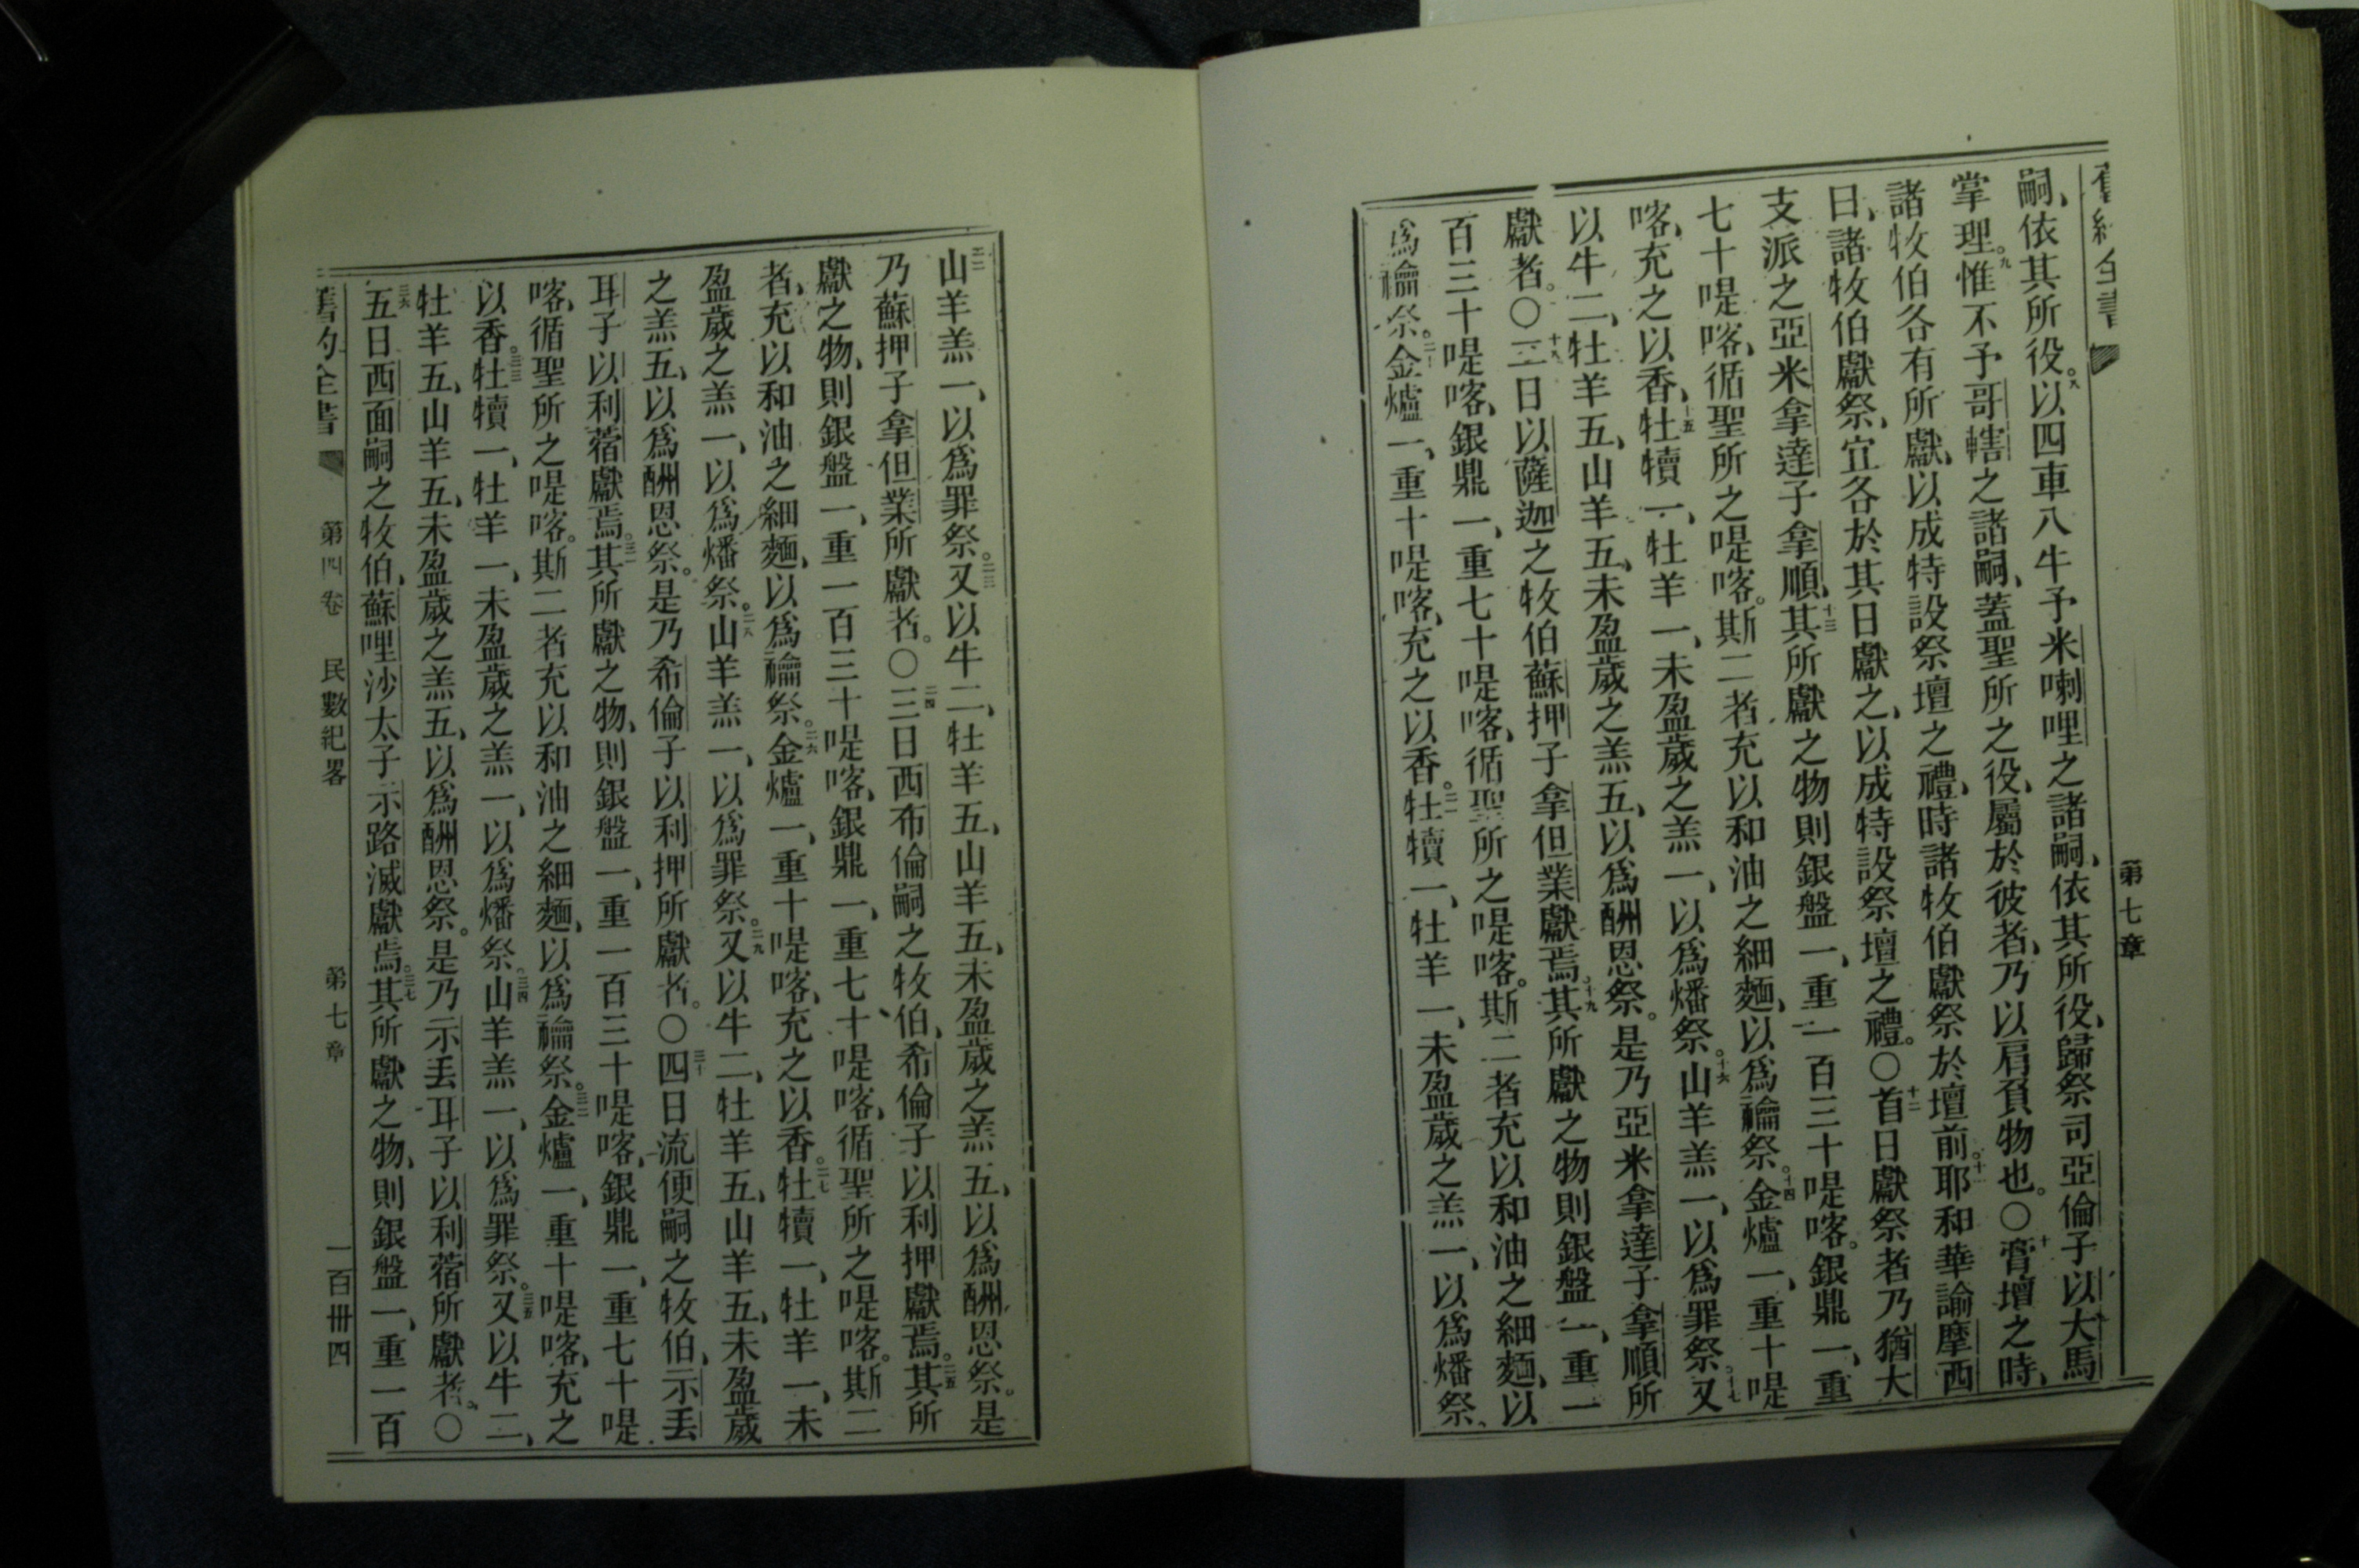 舊約全書
第七章
嗣、依其所役。八以四車八牛予米喇哩之諸嗣、依其所役、歸祭司亞倫子以大馬
掌理。九惟不予哥轄之諸嗣、蓋聖所之役、屬於彼者、乃以肩負物也。〇十膏壇之時、
諸牧伯各有所獻、以成特設祭壇之禮、時諸牧伯獻祭於壇前。十一耶和華諭摩西
曰、諸牧伯獻祭、宜各於其日獻之、以成特設祭壇之禮。〇十二首日獻祭者乃猶大
支派之亞米拿達子拿順、十三其所獻之物則銀盤一、重一百三十㖷喀。銀鼎一、重
七十㖷喀、循聖所之㖷喀。斯二者充以和油之細麵、以爲禴祭。十四金爐一、重十㖷
喀、充之以香、十五牡犢一、牡羊一、未盈歲之羔一、以爲燔祭。十六山羊羔一、以爲罪祭。十七又
以牛二、牡羊五、山羊五、未盈歲之羔五、以爲酬恩祭。是乃亞米拿達子拿順所
獻者。〇十八二日以薩迦之牧伯蘇押子拿但業獻焉。十九其所獻之物則銀盤一、重一
百三十㖷喀、銀鼎一、重七十㖷喀、循聖所之㖷喀。斯二者充以和油之細麵、以
爲禴祭。二十金爐一、重十㖷喀、充之以香。二一牡犢一、牡羊一、未盈歲之羔一、以爲燔祭、
二二山羊羔一、以爲罪祭。二三又以牛二、牡羊五、山羊五、未盈歲之羔五、以爲酬恩祭。是
乃蘇押子拿但業所獻者。〇二四三日西布倫嗣之牧伯、希倫子以利押獻焉。二五其所
獻之物、則銀盤一、重一百三十㖷喀、銀鼎一、重七十㖷喀、循聖所之㖷喀。斯二
者、充以和油之細麵、以爲禴祭。二六金爐一、重十㖷喀、充之以香。二七牡犢一、牡羊一、未
盈歲之羔一、以爲燔祭。二八山羊羔一、以爲罪祭。二九又以牛二、牡羊五、山羊五、未盈歲
之羔五、以爲酬恩祭。是乃希倫子以利押所獻者。〇三十四日流便嗣之牧伯、示丟
耳子以利蓿獻焉。三一其所獻之物、則銀盤一、重一百三十㖷喀、銀鼎一、重七十㖷
喀、循聖所之㖷喀。斯二者充以和油之細麵、以爲禴祭。三二金爐一、重十㖷喀、充之
以香。三三牡犢一、牡羊一、未盈歲之羔一、以爲燔祭。三四山羊羔一、以爲罪祭。三五又以牛二、
牡羊五、山羊五、未盈歲之羔五、以爲酬恩祭。是乃示丟耳子以利蓿所獻者。〇
三六五日西面嗣之牧伯、蘇哩沙太子示路滅獻焉。三七其所獻之物、則銀盤一、重一百
舊約全書 第四卷 民數紀畧 第七章 一百卅四